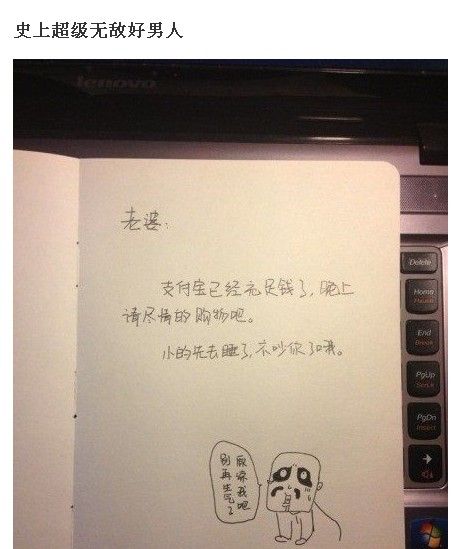 史上超级无敌好男人
lenovo
老婆：
支付宝已经充足钱了，晚上
请尽情的购物吧。
小的先去睡了，不吵你了哦。
原谅我吧
别再生气了
Delete
Home
Pause
End
Break
PgUp
ScrLk
PgDn
Insert